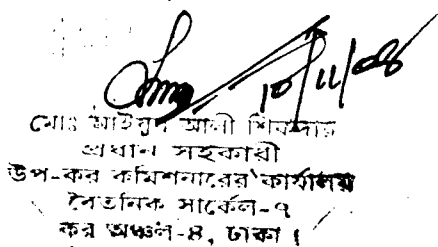 10/11/08
মোঃ আইয়ুব আলী শিকদার
প্রধান সহকারী
উপ-কর কমিশনারের কার্যালয়
বৈতনিক সার্কেল-৭
কর অঞ্চল-৪, ঢাকা।